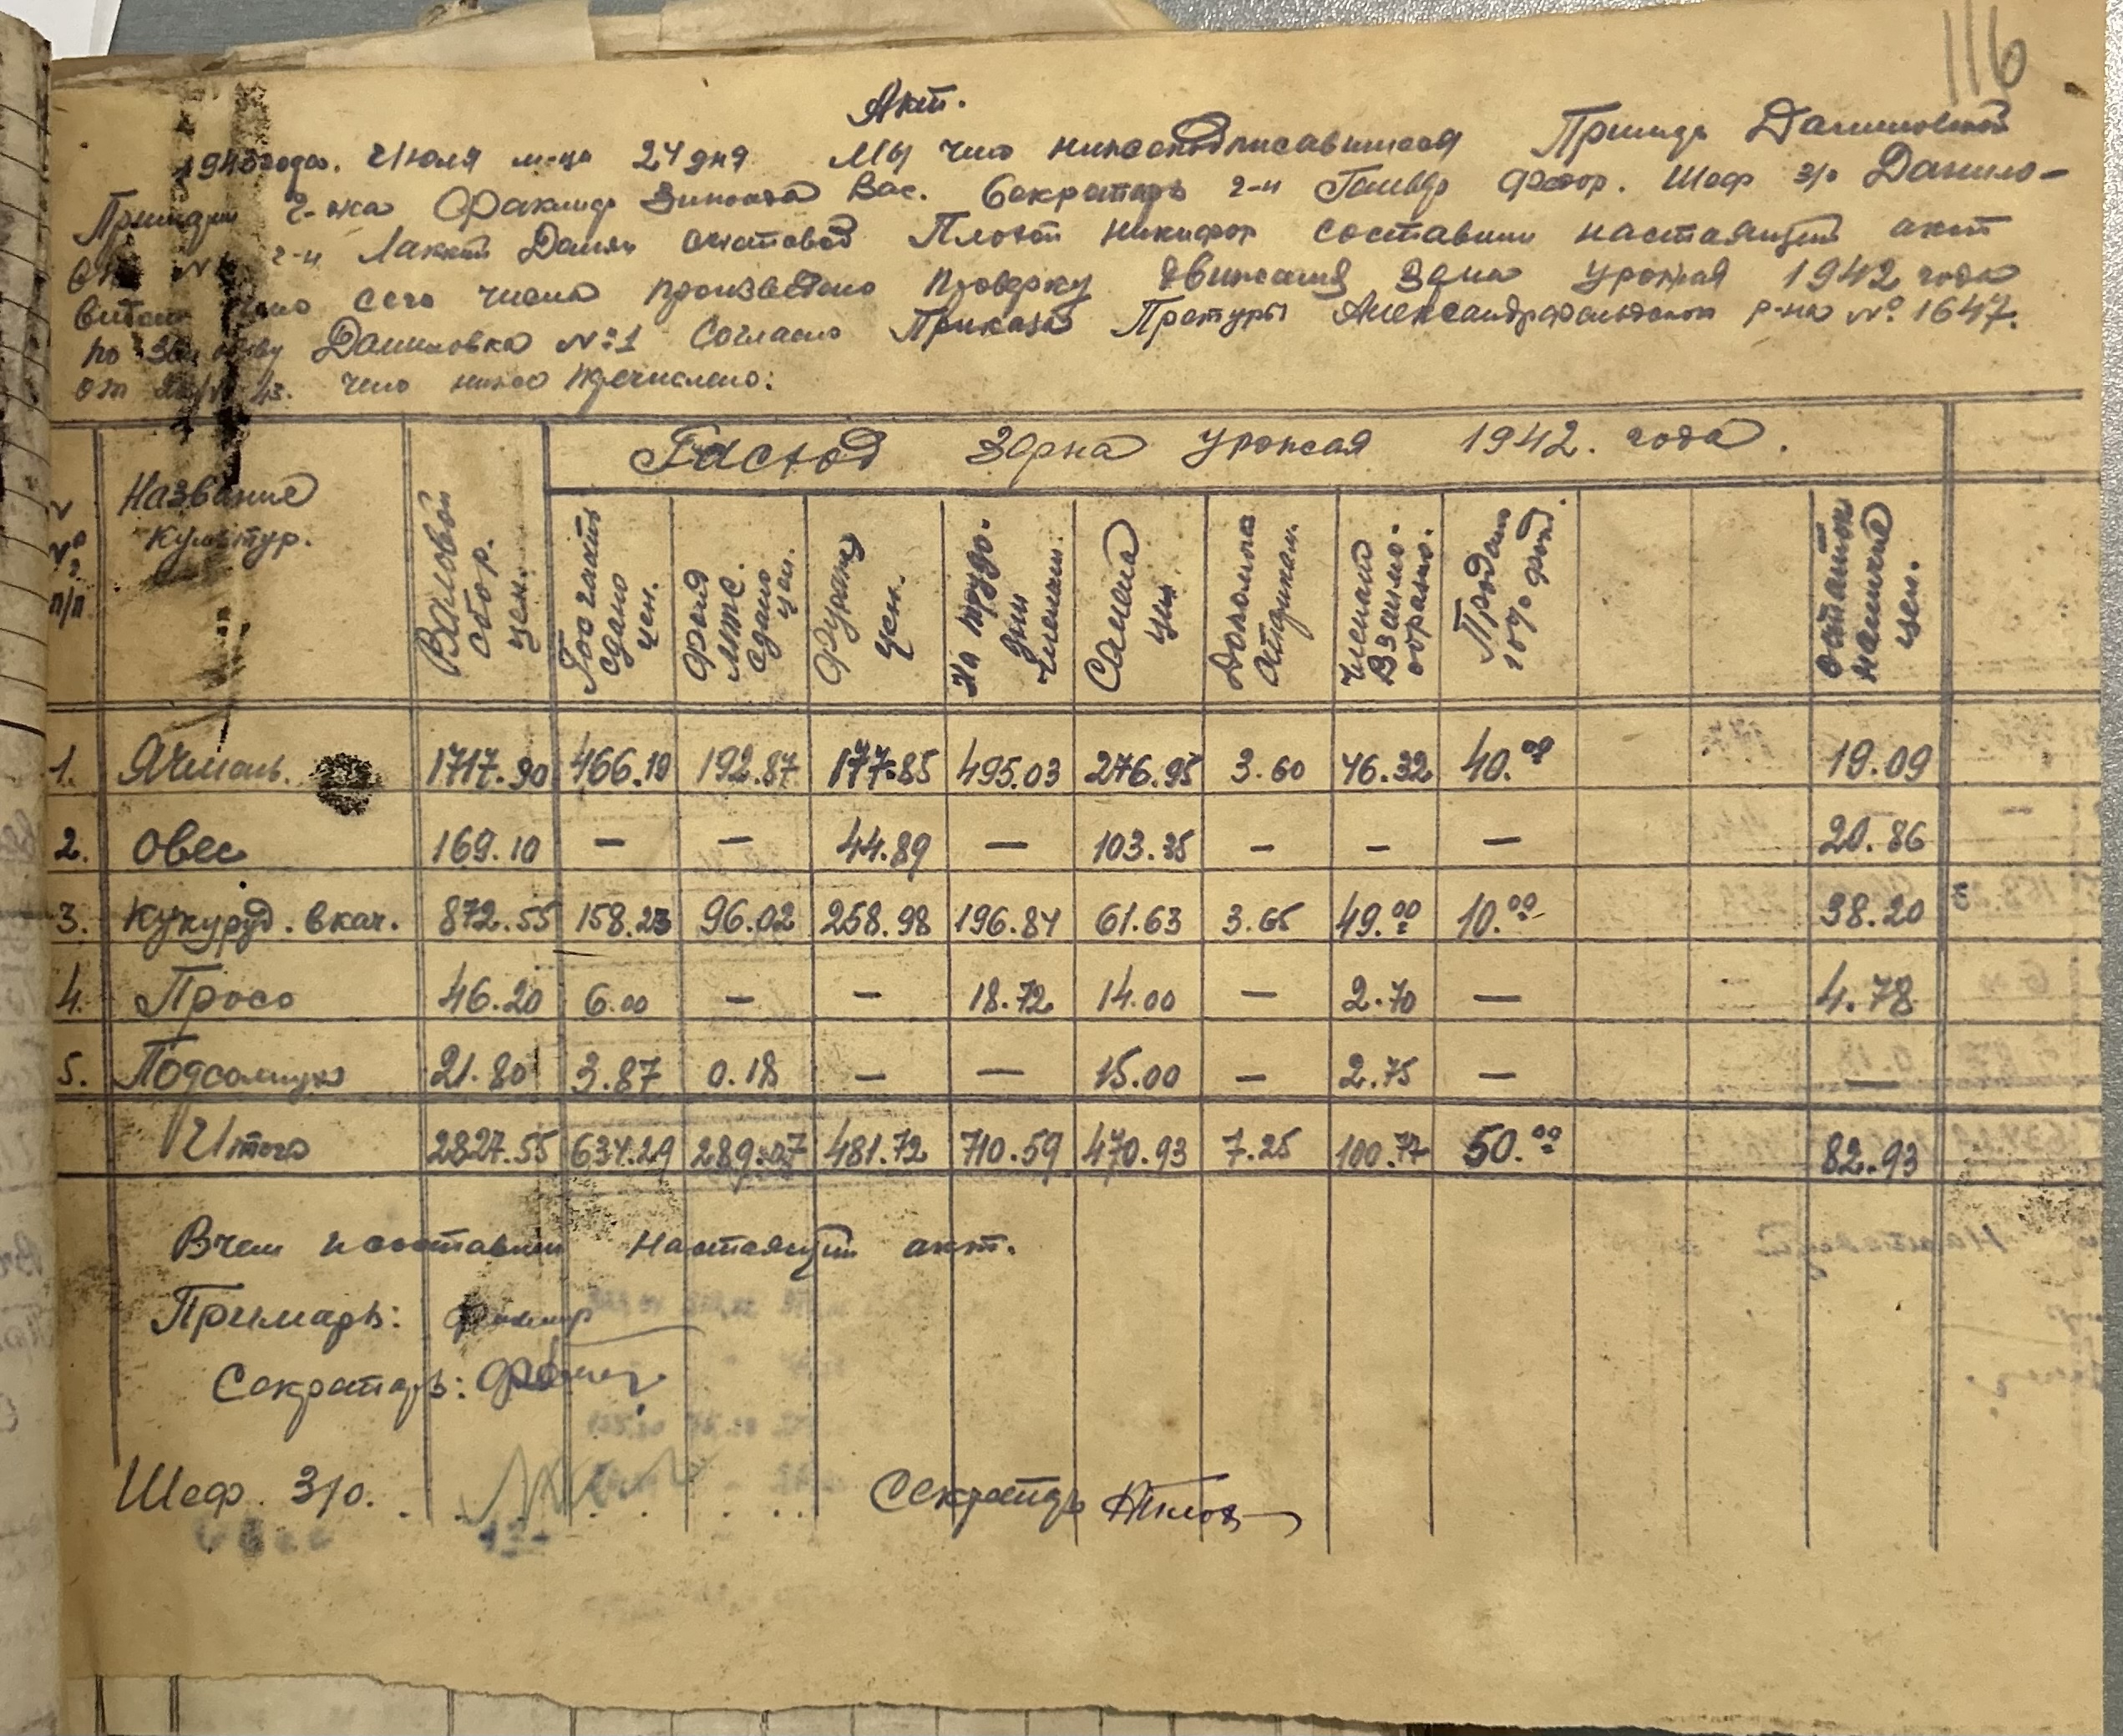 116
Акт.
1943 года. Июля м-ца 24 дня Мы что нижеподписавшиеся Примарь Даниловской
Вас. Секретарь г-н Федор. Шеф з/о Данило-
№1 г-н Данил счетовод Плохой Никифор составили настоящий акт
сего числа произведено проверку движения урожая 1942 года
по Даниловка №1 Согласно Приказа Претуры Александрфельдского р-на № 1647.
от 43. что ниже перечислено:
№№ п/п
Название культур.
Валовый сбор. цен.
Расход Зерна урожая 1942. года.
Гос сдано цен.
Фонд МТС. сдано цен.
Фураж цен.
На трудо-дни членам.
Семена цен
членам Взаимо-образно.
Продано 10% фонд.
остаток наличие цен.
1. Ячмень. 1717.90 466.19 192.87 177.85 495.03 276.95 3.60 46.32 40.00 19.09
2. Овес 169.10 — — 44.89 — 103.35 — — — 20.86
3. Кукуруд. в кач. 872.55 158.23 96.02 258.98 196.84 61.63 3.65 49.00 10.00 38.20
4. Просо 46.20 6.00 — — 18.72 14.00 — 2.70 — 4.78
5. Подсолнух 21.80 3.87 0.18 — — 15.00 — 2.75 — —
Итого 2827.55 634.29 289.07 481.72 710.59 470.93 7.25 100.77 50.00 82.93
В чем и составили настоящий акт.
Примарь:
Секретарь:
Шеф. З/О.
Секретарь